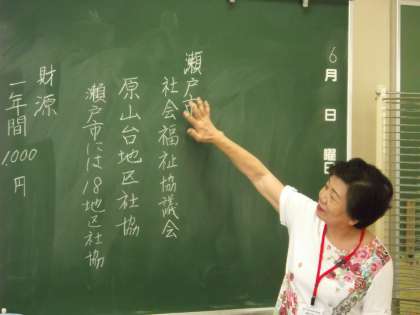 6月 日 曜日
瀬戸市
社会福祉協議会
原山台地区社協
瀬戸市には18地区社協
財源
一年間1,000円